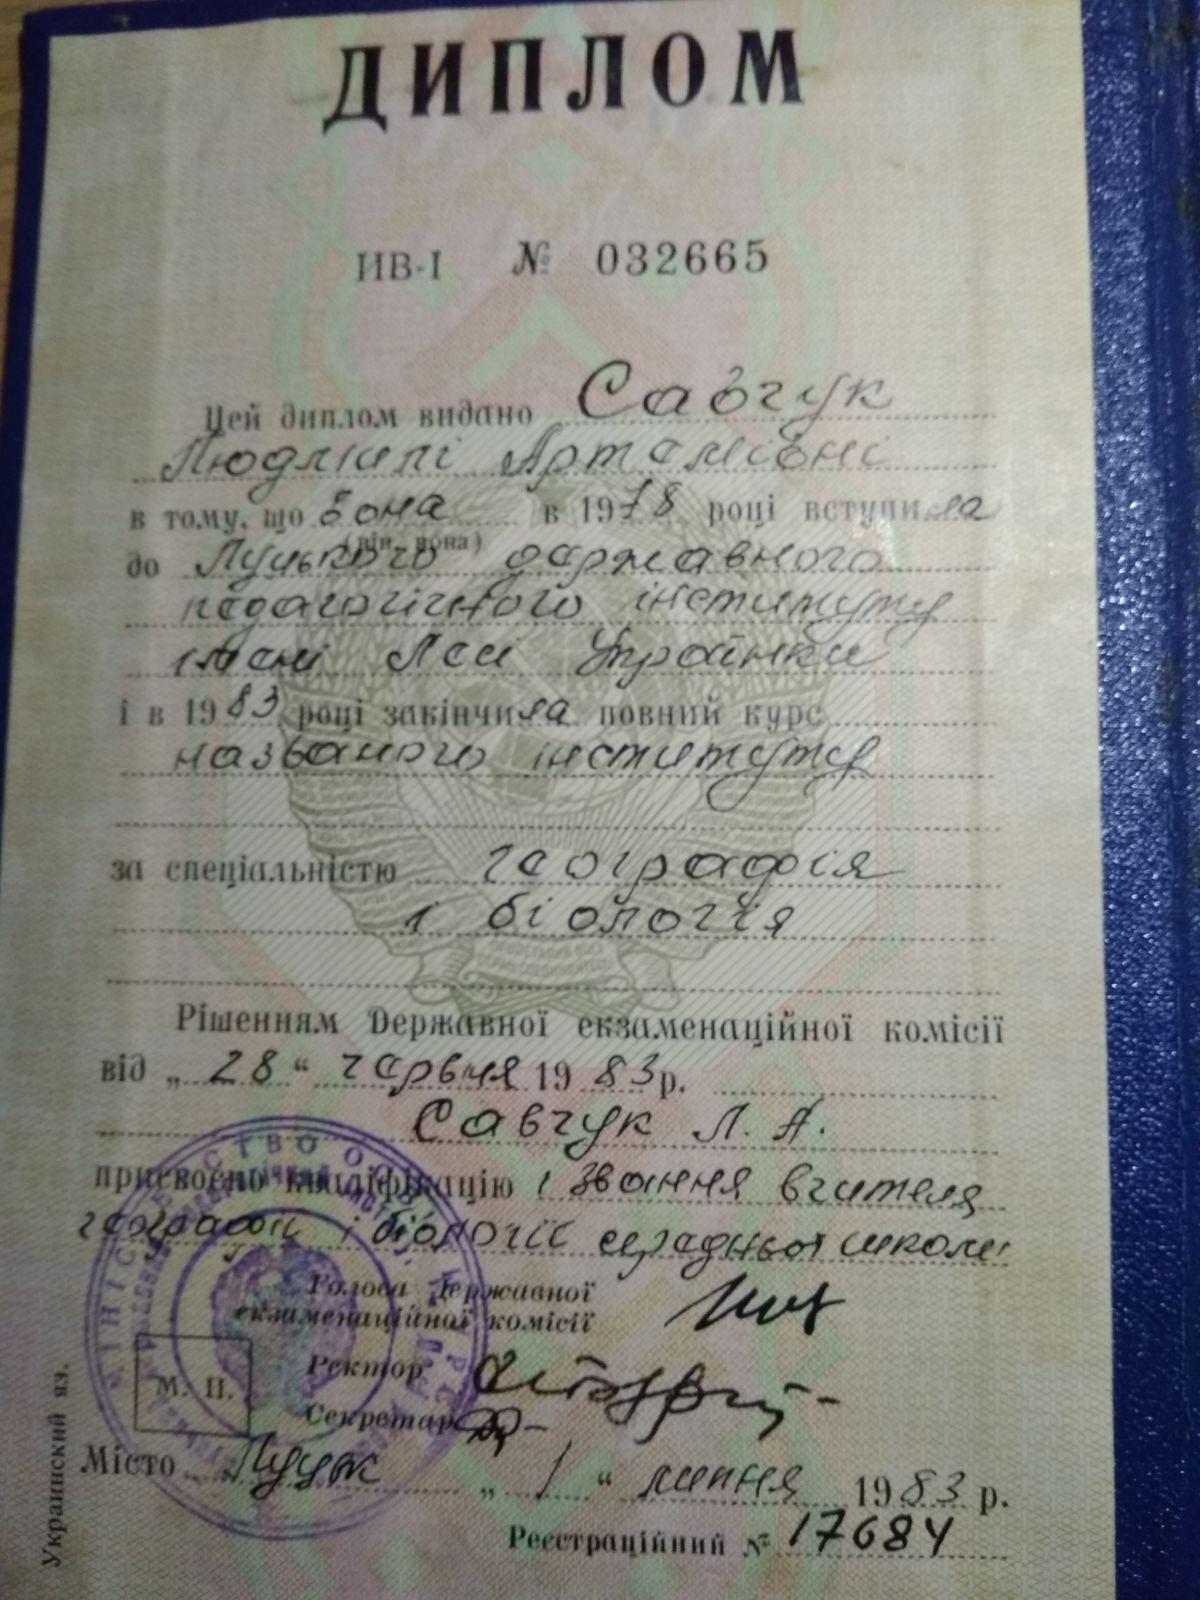 ДИПЛОМ
ИВ-I № 032665
Цей диплом видано Савчук
Людмилі Артемівні
в тому, що вона в 1978 році вступила
(він, вона)
до Луцького державного
педагогічного інституту
імені Лесі Українки
і в 1983 році закінчила повний курс
названого інституту
за спеціальністю географія
і біологія
Рішенням Державної екзаменаційної комісії
від „28“ червня 1983 р.
Савчук Л. А.
присвоєно кваліфікацію і звання вчителя
географії і біології середньої школи
Голова Державної
екзаменаційної комісії
Ректор
Секретар
М. П.
Місто Луцьк „1“ липня 1983 р.
Реєстраційний № 17684
Украинский яз.